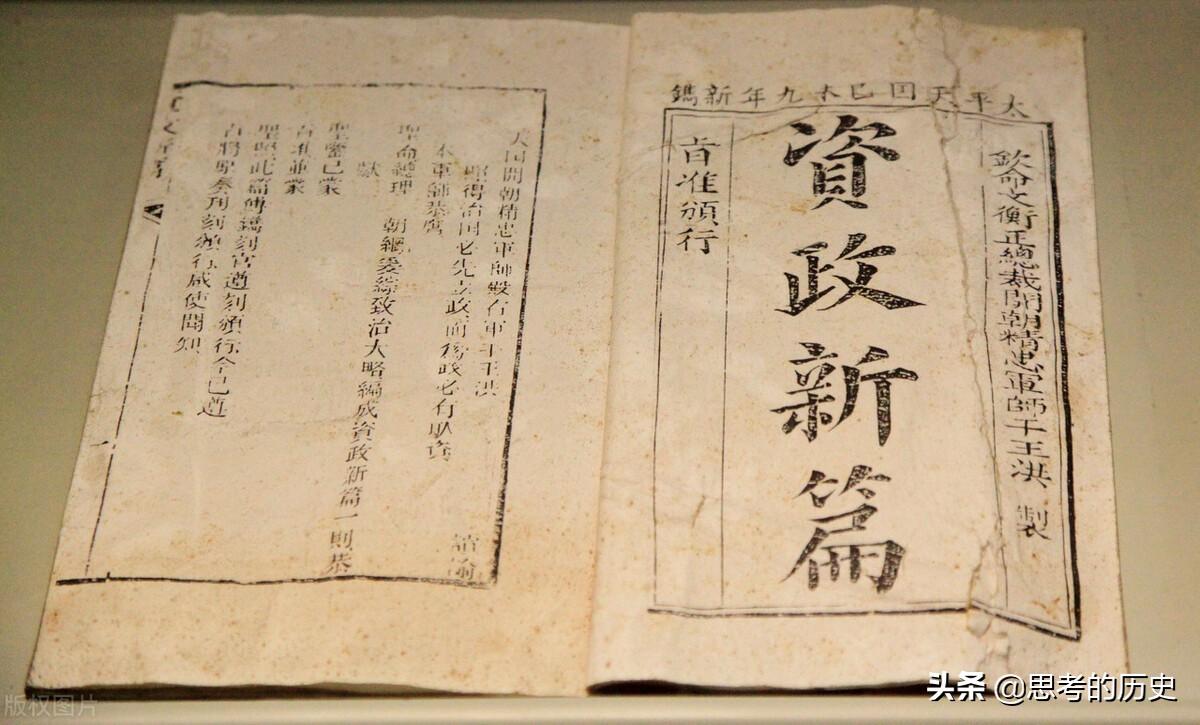 太平天囯己未九年新鐫
欽命文衡正總裁開朝精忠軍師干王洪 製
資政新篇
旨准頒行
天囯開朝精忠軍師殿右軍干王洪 諭
照得治囯必先立政而後政必有取資
本軍師恭膺
聖命總理 朝綱爰綜致治大略編成資政新篇一則恭
獻
聖鑒已蒙
旨准並蒙
聖照此篇傳鐫刻官遵刻頒行今已遵
旨將原奏刊刻頒行咸使聞知
一
版权图片
头条 @思考的历史